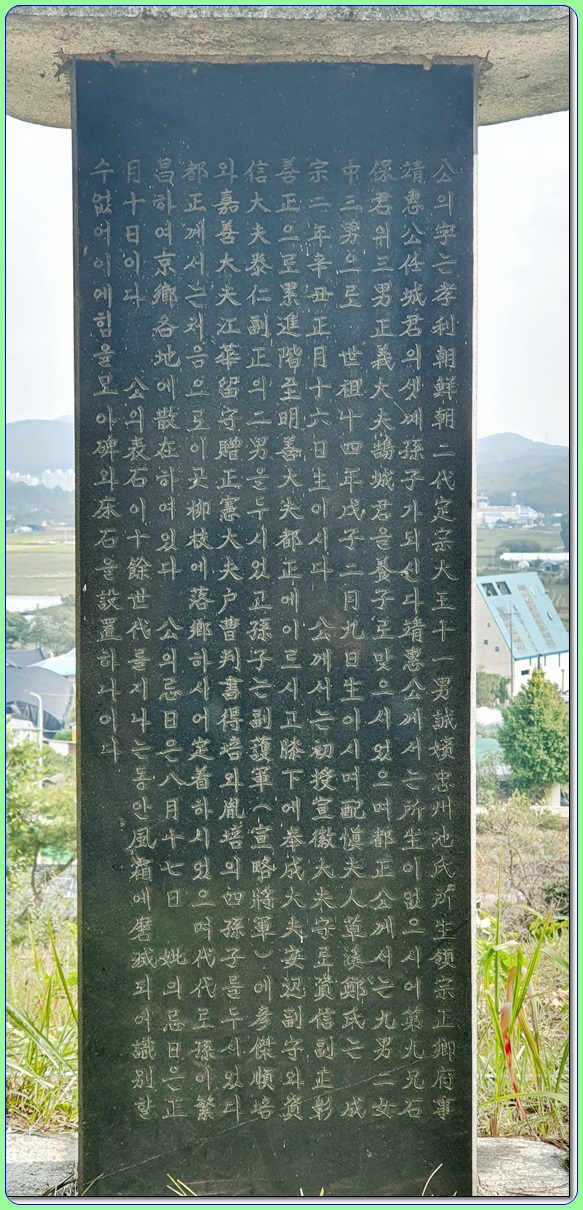 公의字는孝利朝鮮朝二代定宗大王十一男誠嬪忠州池氏所生領宗正卿府事
靖惠公任城君의셋째孫子가되신다靖惠公께서는所生이없으시어第九兄石
保君의三男正義大夫鵠城君을養子로맞으시었으며都正公께서는九男二女
中三男으로 世祖十四年戊子二月九日生이시며配愼夫人草溪鄭氏는 成
宗二年辛丑正月十六日生이시다 公께서는初授宣徽大夫守로資信副正彰
善正으로累進階至明善大夫都正에이르시고膝下에奉成大夫安邊副守와資
信大夫泰仁副正의二男을두시었고孫子는副護軍(宣略將軍)에彦傑順培
와嘉善大夫江華留守贈正憲大夫户曹判書得培와胤培의四孫子를두시었다
都正께서는처음으로이곳柳枝에落鄉하사어定着하시었으며代代로孫이繁
昌하여京鄉各地에散在하여있다 公의忌日은八月十七日 妣의忌日은正
月十日이다 公의表石이十餘世代를지나는동안風霜에磨滅되어識別할
수없어이에힘을모아碑와床石을設置하나이다